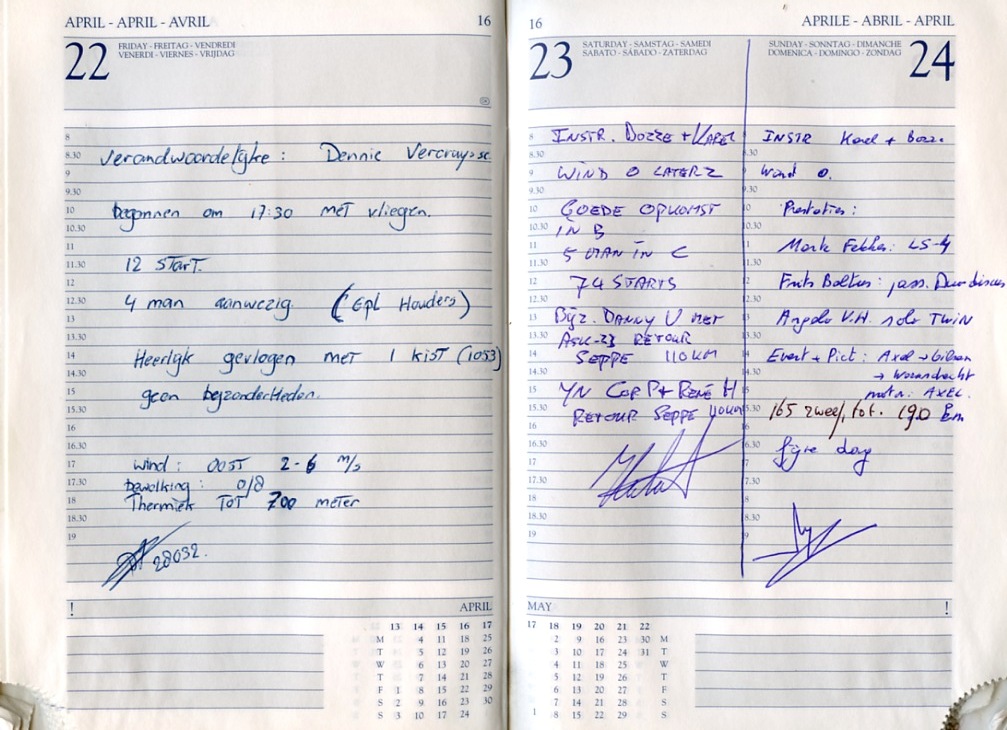 APRIL - APRIL - AVRIL 16
22 FRIDAY - FREITAG - VENDREDI
VENERDI - VIERNES - VRIJDAG
8
8.30 Verandwoordelijke : Dennie
9
9.30
10 begonnen om 17:30 met vliegen.
10.30
11
11.30 12 START.
12
12.30 4 man aanwezig. (Gpl Houders)
13
13.30
14 Heerlijk gevlogen met 1 kist (1053)
14.30
15 geen bijzonderHeden.
15.30
16
16.30
17 wind : OOST 2-6 m/s
17.30 bewolking : 0/8
18 Thermiek TOT 700 meter
18.30
19
28032.
! APRIL
13 14 15 16 17
M 4 11 18 25
T 5 12 19 26
W 6 13 20 27
T 7 14 21 28
F 1 8 15 22 29
S 2 9 16 23 30
S 3 10 17 24
16
23 SATURDAY - SAMSTAG - SAMEDI
SABATO - SÁBADO - ZATERDAG
8 INSTR. DOZZE + KAREL
8.30
9 WIND O LATER Z
9.30
10 GOEDE OPKOMST
10.30 IN B
11 5 MAN IN C
11.30
12 74 STARTS
12.30
13 Bijz. DANNY V MET
13.30 ASK-23 RETOUR
14 SEPPE 110 KM
14.30
15 YN COR P + RENÉ H
15.30 RETOUR SEPPE 110KM
16
16.30
17
17.30
18
18.30
19
APRILE - ABRIL - APRIL
SUNDAY - SONNTAG - DIMANCHE
DOMENICA - DOMINGO - ZONDAG 24
INSTR Karel +
8.30
9 Wind O.
9.30
10 Prestaties :
10.30
11 Mark : LS-4
11.30
12 Frits : pass. Duo discus
12.30
13 Angelo V.H. solo TWIN
13.30
14 Evert + Piet : Axel →
14.30 → Woensdrecht
15 motor: AXEL.
15.30 165 zweef, tot. 190 km
16.30 fijne dag
17
7.30
8
8.30
9
MAY !
17 18 19 20 21 22
2 9 16 23 30 M
3 10 17 24 31 T
4 11 18 25 W
5 12 19 26 T
6 13 20 27 F
7 14 21 28 S
1 8 15 22 29 S